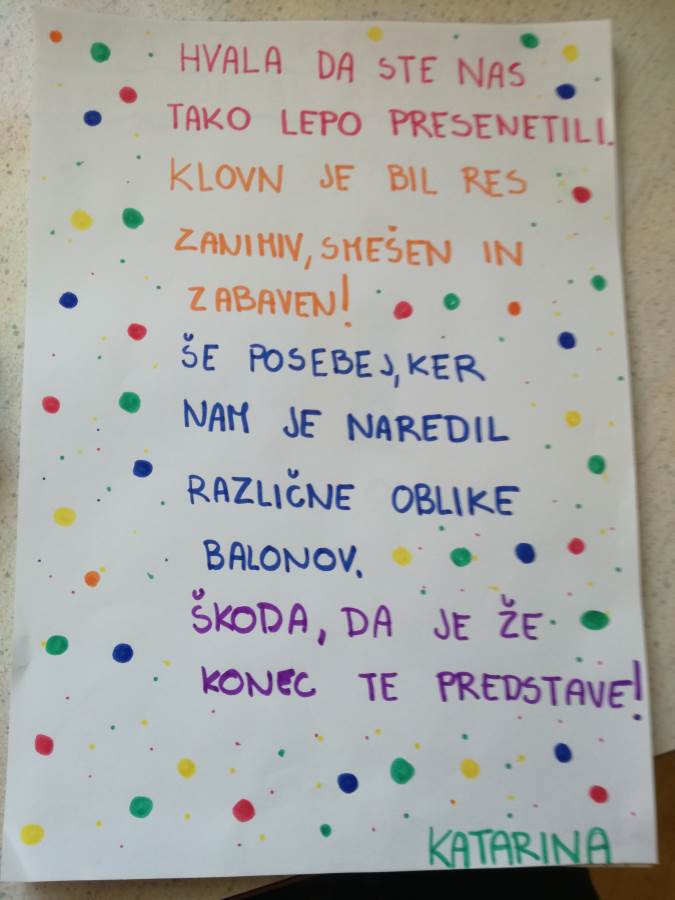 HVALA DA STE NAS
TAKO LEPO PRESENETILI.
KLOVN JE BIL RES
ZANIMIV, SMEŠEN IN
ZABAVEN!
ŠE POSEBEJ, KER
NAM JE NAREDIL
RAZLIČNE OBLIKE
BALONOV.
ŠKODA, DA JE ŽE
KONEC TE PREDSTAVE!
KATARINA